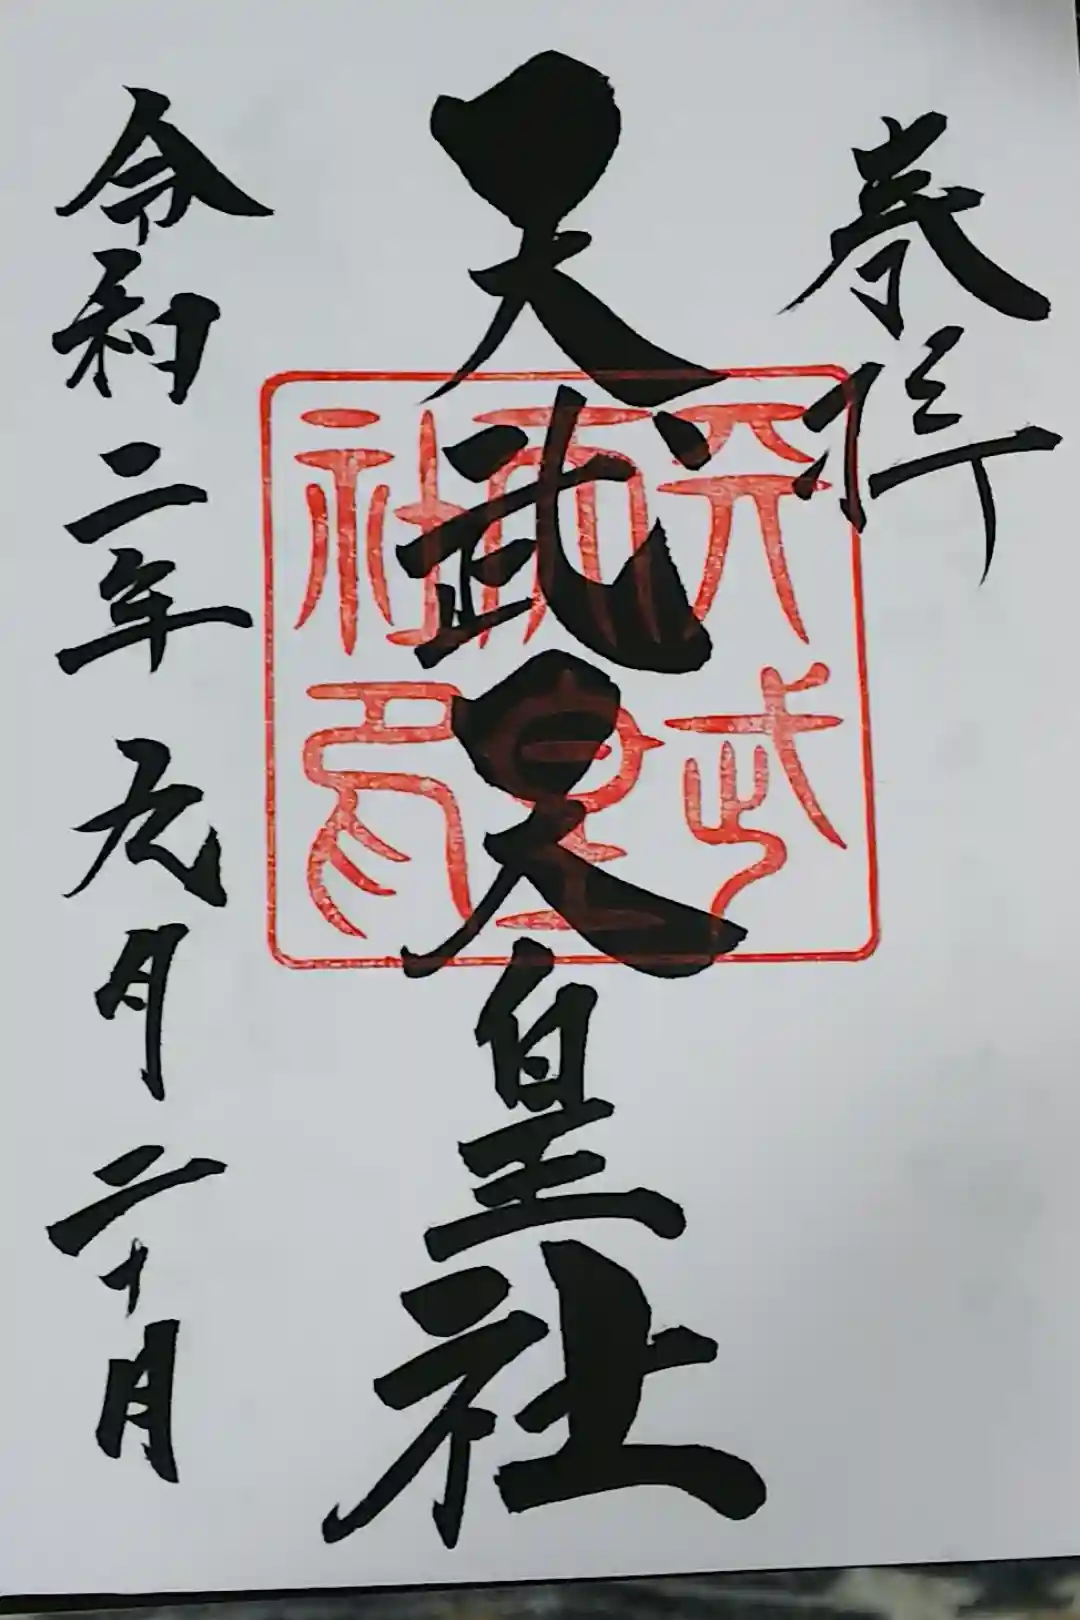 奉拝
天武天皇社
天武
天皇
社印
令和二年元月二十日